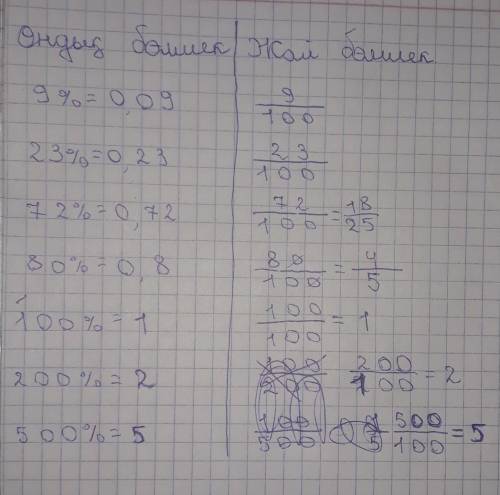 Ондық бөлшек Жай бөлшек
9% = 0,09 9/100
23% = 0,23 23/100
72% = 0,72 72/100 = 18/25
80% = 0,8 80/100 = 4/5
100% = 1 100/100 = 1
200% = 2 200/100 = 2
500% = 5 500/100 = 5